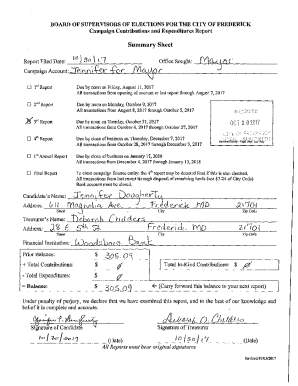 BOARD OF SUPERVISORS OF ELECTIONS FOR THE CITY OF FREDERICK
Campaign Contributions and Expenditures Report
Summary Sheet
Report Filed Date: 10/30/17 Office Sought: Mayor
Campaign Account: Jennifer for Mayor
☐ 1st Report Due by noon on Friday, August 11, 2017
All transactions from opening of account or last report through August 7, 2017
☐ 2nd Report Due by noon on Monday, October 9, 2017
All transactions from August 8, 2017 to October 5, 2017
☒ 3rd Report Due by noon on Tuesday, October 31, 2017
All transactions from October 6, 2017 to October 27, 2017
☐ 4th Report
All transactions from October 28, 2017 through December 5, 2017
☐ 1st Annual Report Due by close of business on January 17, 2018
All transactions from December 6, 2017 through January 10, 2018
☐ Final Report
Bank account must be closed.
Candidate's Name: Jennifer Dougherty
Address: Magnolia Ave Frederick MD 21701
Street City Zip Code
Treasurer's Name: Deborah Childers
Address: 28 E 5th St Frederick MD 21701
Street City Zip Code
Financial Institution: Woodsboro Bank
Prior Balance: $ 305.09
+ Total Contributions: $ 0 Total In-Kind Contributions: $ 0
- Total Expenditures: $ 0
= Balance: $ 305.09 (Carry forward this balance to your next report)
Under penalty of perjury, we declare that we have examined this report, and to the best of our knowledge and
belief it is complete and accurate.
Signature of Candidate Signature of Treasurer
10/30/2017 (Date) 10/30/2017 (Date)
All Reports must bear original signatures